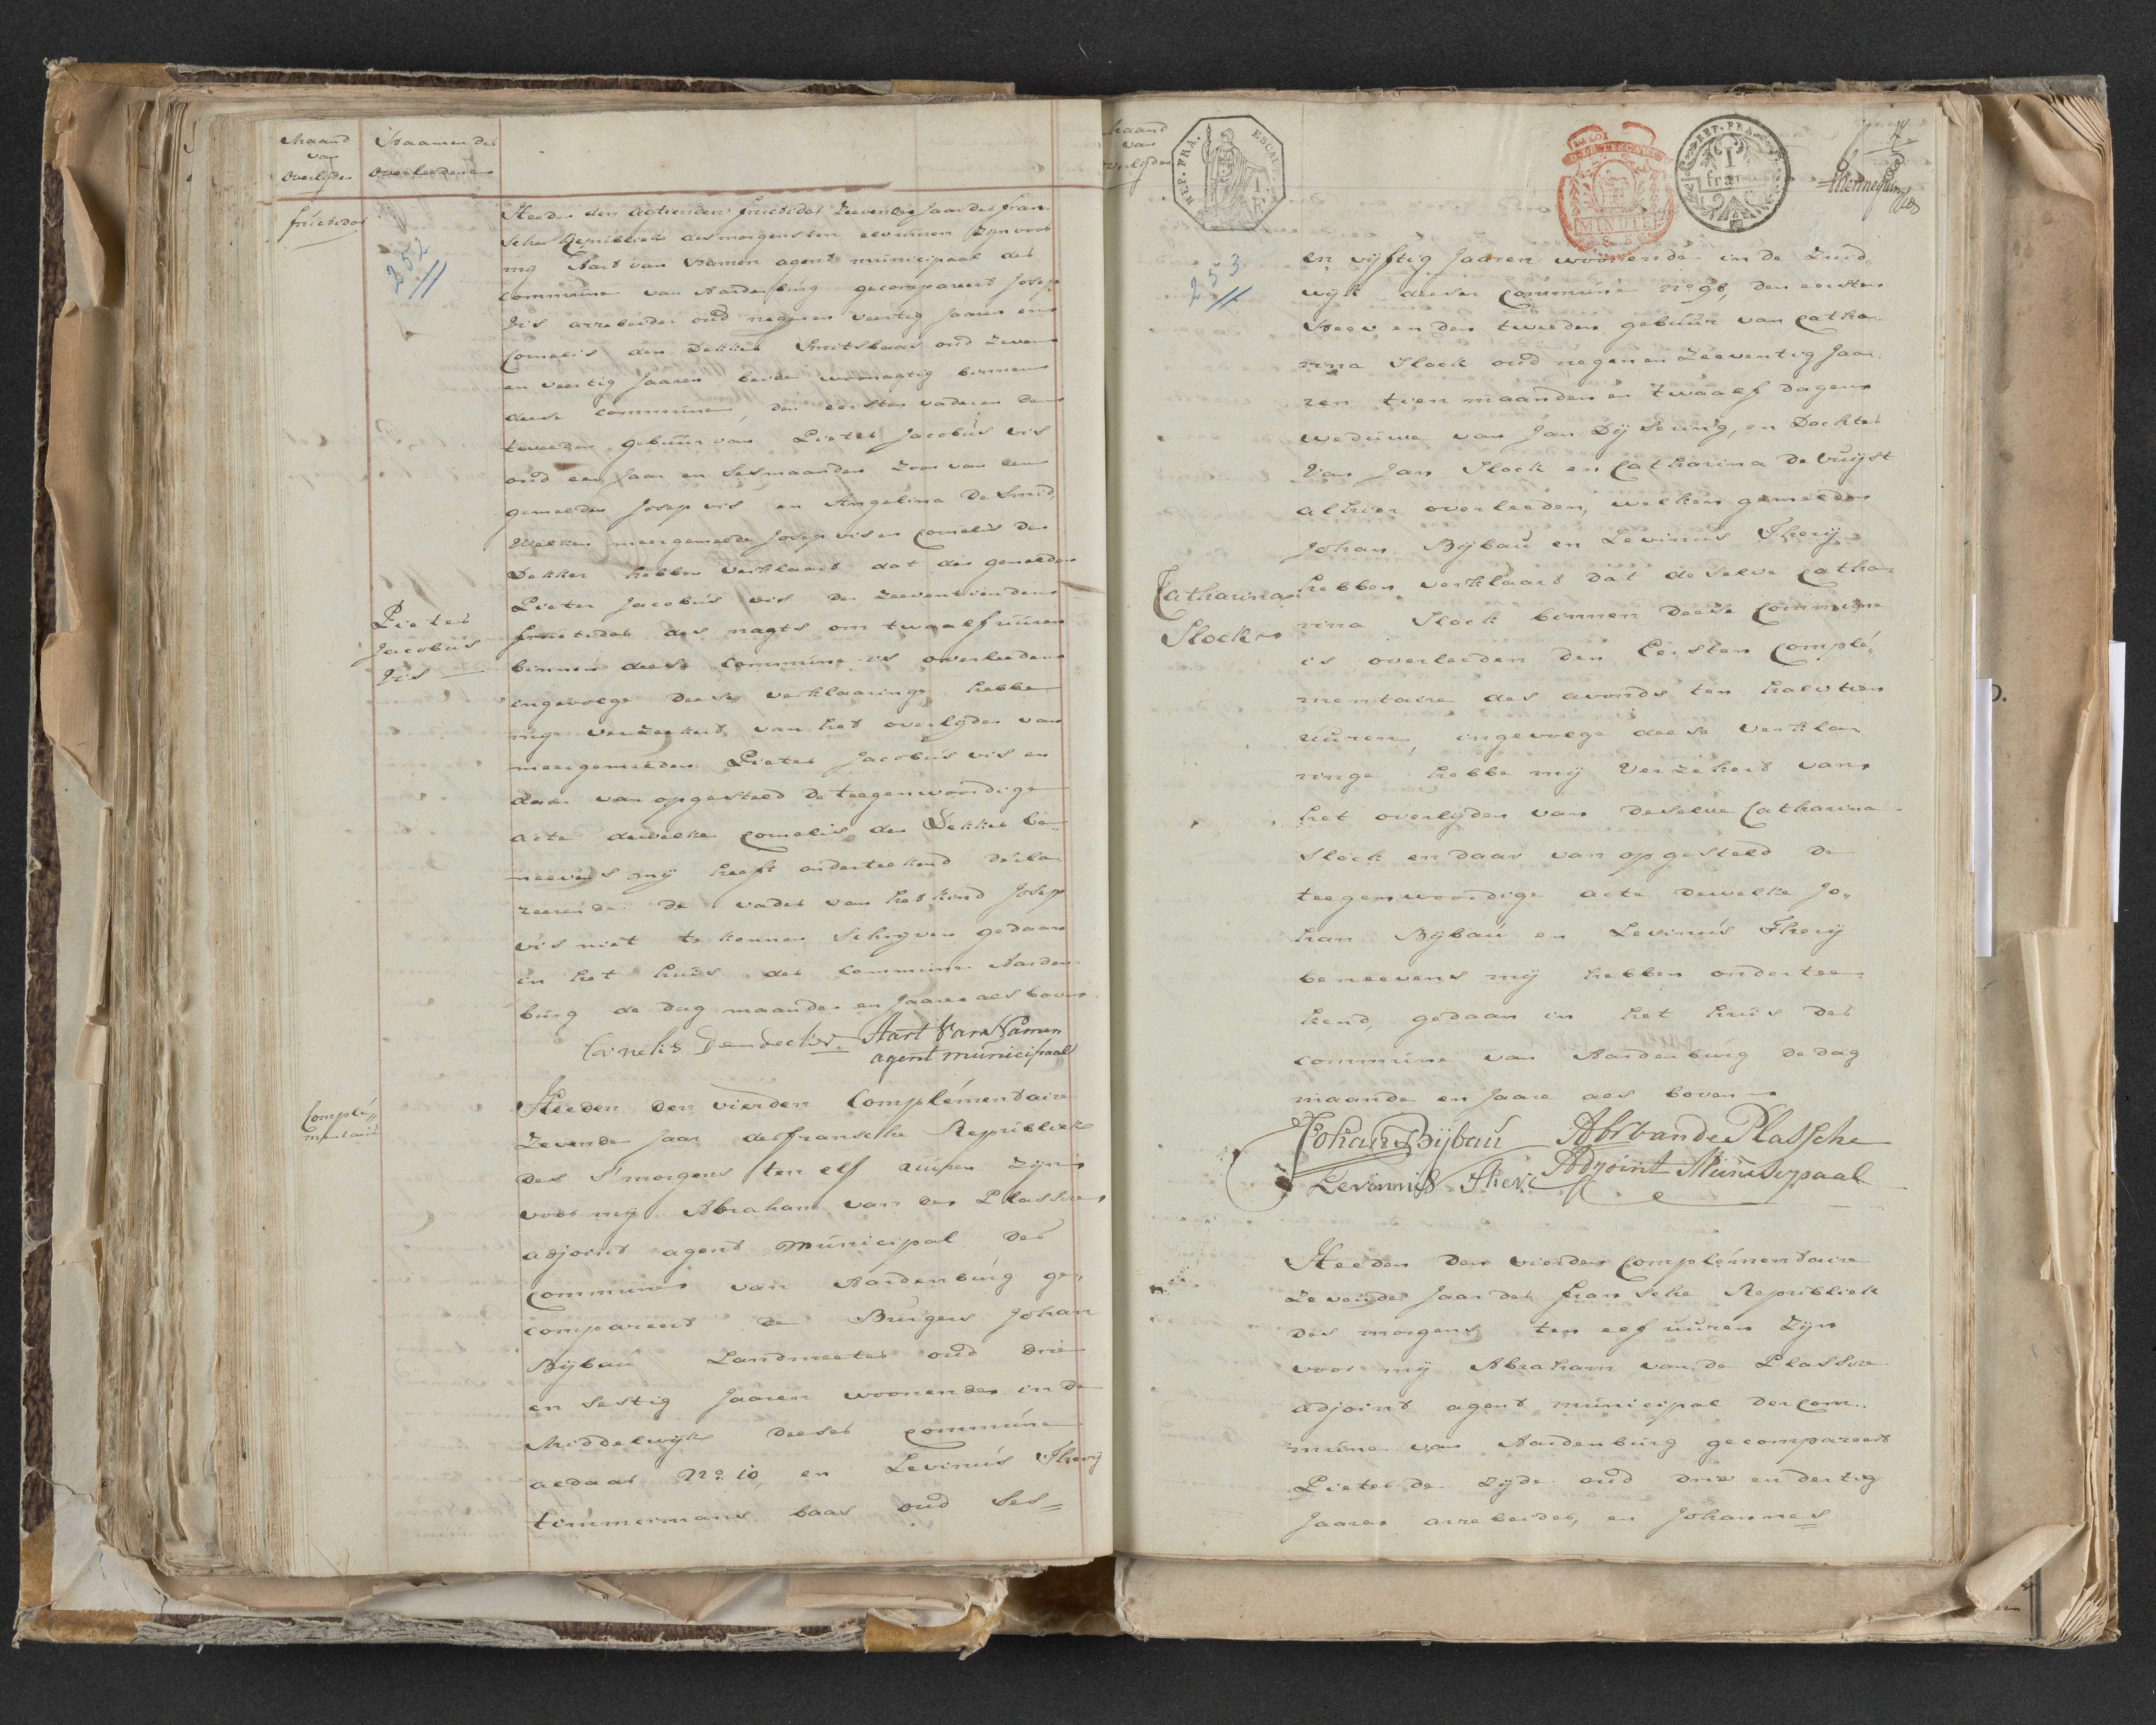 Maand
van
Overlijden
Naamen der
Overleedene
fructidor
252
Heeden den agtienden fructidor Zeevende Jaar der fran
sche Republiek des morgens ten elv uuren Zijn voor
mij Aart van Namen agent municipaal der
commune van Aardenburg gecompareert Josep
Vis arrebeider oud negen en veertig Jaaren en
Cornelis den Dekker Smitsbaas oud Zeven
en veertig Jaaren beiden woonagtig binnen
deese commune, den eersten vader en den
tweeden gebuur van Pieter Jacobus vis
oud een Jaar en Ses maanden Zoon van den
gemelden Josep vis en Angelina De Smid
Welken meergemelde Josep vis en Cornelis den
Dekker hebben verklaart dat den gemelden
Pieter Jacobus vis den Zeeventienden
Pieter
Jacobus
Vis
fructidor des nagts om twaalf uuren
binnen deese Commune is overleeden
ingevolge deese verklaaringe hebbe
mij verzeekert van het overlijden van
meergemelden Pieter Jacobus vis en
daar van opgesteld de teegenwoordige
acte dewelke Cornelis den Dekker be„
neevens mij heeft onderteekend decla
reerende de vader van het kind Josep
vis niet te konnen Schrijven gedaan
in het huis der Commune Aarden
burg de dag maande en Jaare als boven
Cornelis Dendecker Aart Van Namen
agent municipaal
Complé„
mentaire
Heeden den vierden Complémentaire
Zevende Jaar der fransche Republiek
des S'morgens ten elf uuren Zijn
voor mij Abraham van de Plassce
adjoint agent municipal der
Commune van Aardenburg ge„
compareert de Burgers Johan
Bijbau Landmeeter oud drie
en Sestig Jaaren woonende in de
Middelwijk deeser commune
aldaar No. 10, en Levinus Therij
timmermans baas oud Ses=
Maand
van
Overlijden
REP. FRA.
ESCAUT
1 F
LA LOI
MINUTE
REP. FRA.
1
franc
253
en vijftig Jaaren woonende in de Zuid„
wijk deeser Commune No 96, den eersten
Neev en den tweeden gebuur van Catha
rina Slock oud negen en Zeeventig Jaa
ren tien maanden en twaalf dagen
weduwe van Jan Dijserinq, en Dochter
Van Jan Slock en Catharina De Vuijst
alhier overleeden, welken gemelden
Johan Bijbau en Levinus Therij
Catharina
Slock
hebben verklaard dat de selve Catha
rina Slock binnen deese Commune
is overleeden den Eersten Complé„
mentaire des avonds ten halv tien
uuren, ingevolge deese Verkla
ringe hebbe mij Verzekert van
het overlijden van deselve Catharina
Slock en daar van opgesteld de
teegenwoordige acte dewelke Jo„
han Bijbau en Levinus Therij
beneevens mij hebben ondertee
kend, gedaan in het huis der
commune van Aardenburg de dag
maande en Jaare als boven
Johan Bijbau Abr van de Plassche
Levinnis Therc Adjoint Municipaal
Heeden den vierden Complémentaire
Zevende Jaar der fransche Republiek
des morgens ten elf uuren Zijn
voor mij Abraham van de Plassce
adjoint agent municipal der Com„
mune van Aardenburg gecompareert
Pieter de Zijde oud drie en dertig
Jaaren arrebeider, en Johannes